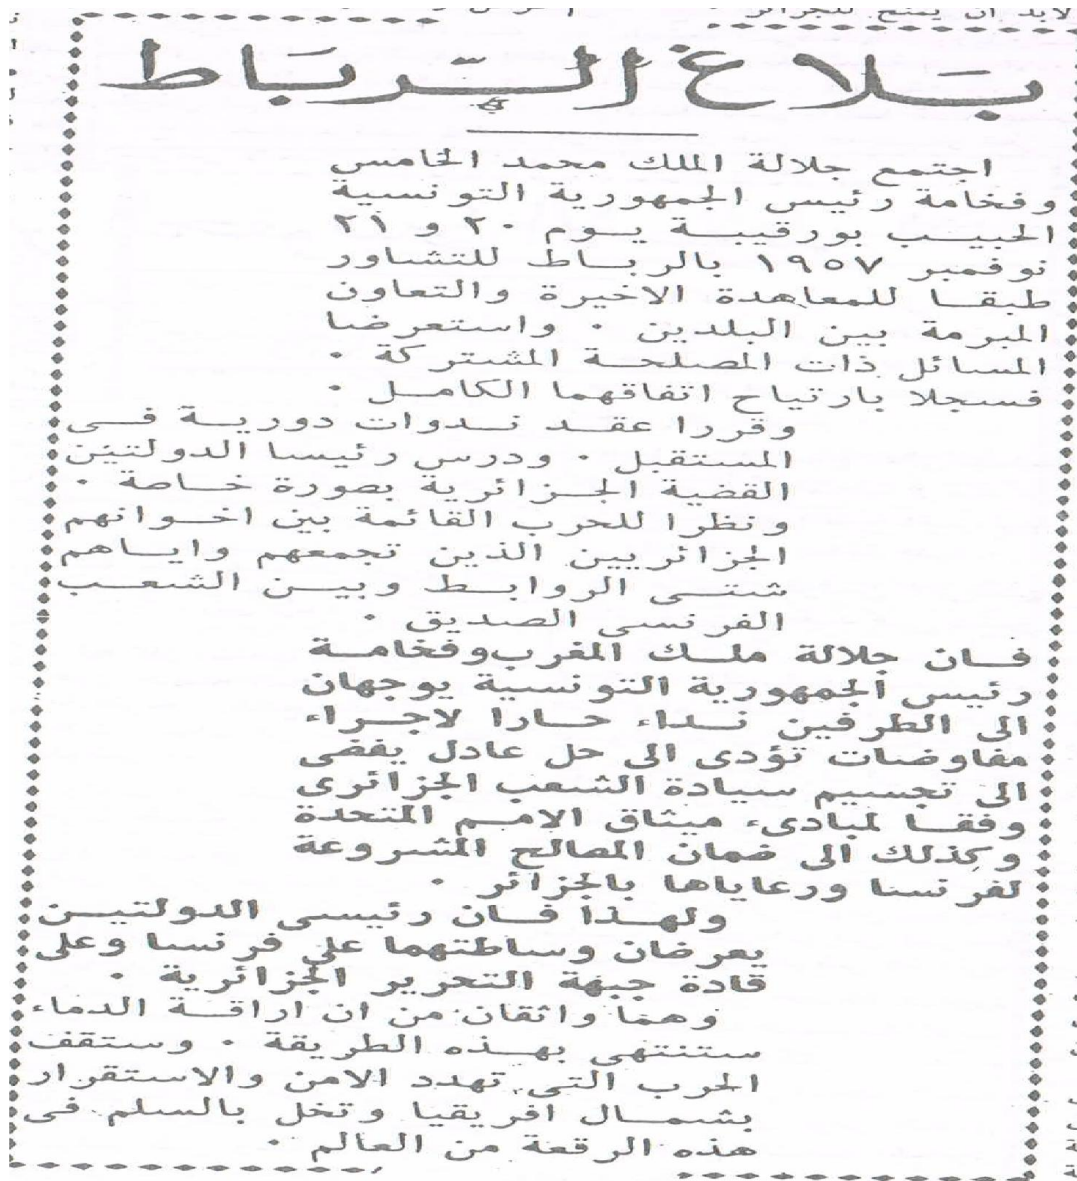 لابد ان يمنح للجزائر
بَلاغ الرّبَاط
اجتمع جلالة الملك محمد الخامس
وفخامة رئيس الجمهورية التونسية
الحبيب بورقيبة يوم ٢٠ و ٢١
نوفمبر ١٩٥٧ بالرباط للتشاور
طبقا للمعاهدة الاخيرة والتعاون
المبرمة بين البلدين ٠ واستعرضا
المسائل ذات المصلحة المشتركة ٠
فسجلا بارتياح اتفاقهما الكامل ٠
وقررا عقد ندوات دورية في
المستقبل ٠ ودرس رئيسا الدولتين
القضية الجزائرية بصورة خاصة ٠
ونظرا للحرب القائمة بين اخوانهم
الجزائريين الذين تجمعهم واياهم
شتى الروابط وبين الشعب
الفرنسى الصديق ٠
فان جلالة ملك المغرب وفخامة
رئيس الجمهورية التونسية يوجهان
الى الطرفين نداء حارا لاجراء
مفاوضات تؤدى الى حل عادل يفضى
الى تجسيم سيادة الشعب الجزائرى
وفقا لمبادىء ميثاق الامم المتحدة
وكذلك الى ضمان المصالح المشروعة
لفرنسا ورعاياها بالجزائر ٠
ولهذا فان رئيسى الدولتين
يعرضان وساطتهما على فرنسا وعلى
قادة جبهة التحرير الجزائرية ٠
وهما واثقان من ان اراقة الدماء
ستنتهى بهذه الطريقة ٠ وستقف
الحرب التى تهدد الامن والاستقرار
بشمال افريقيا وتخل بالسلم فى
هذه الرقعة من العالم ٠